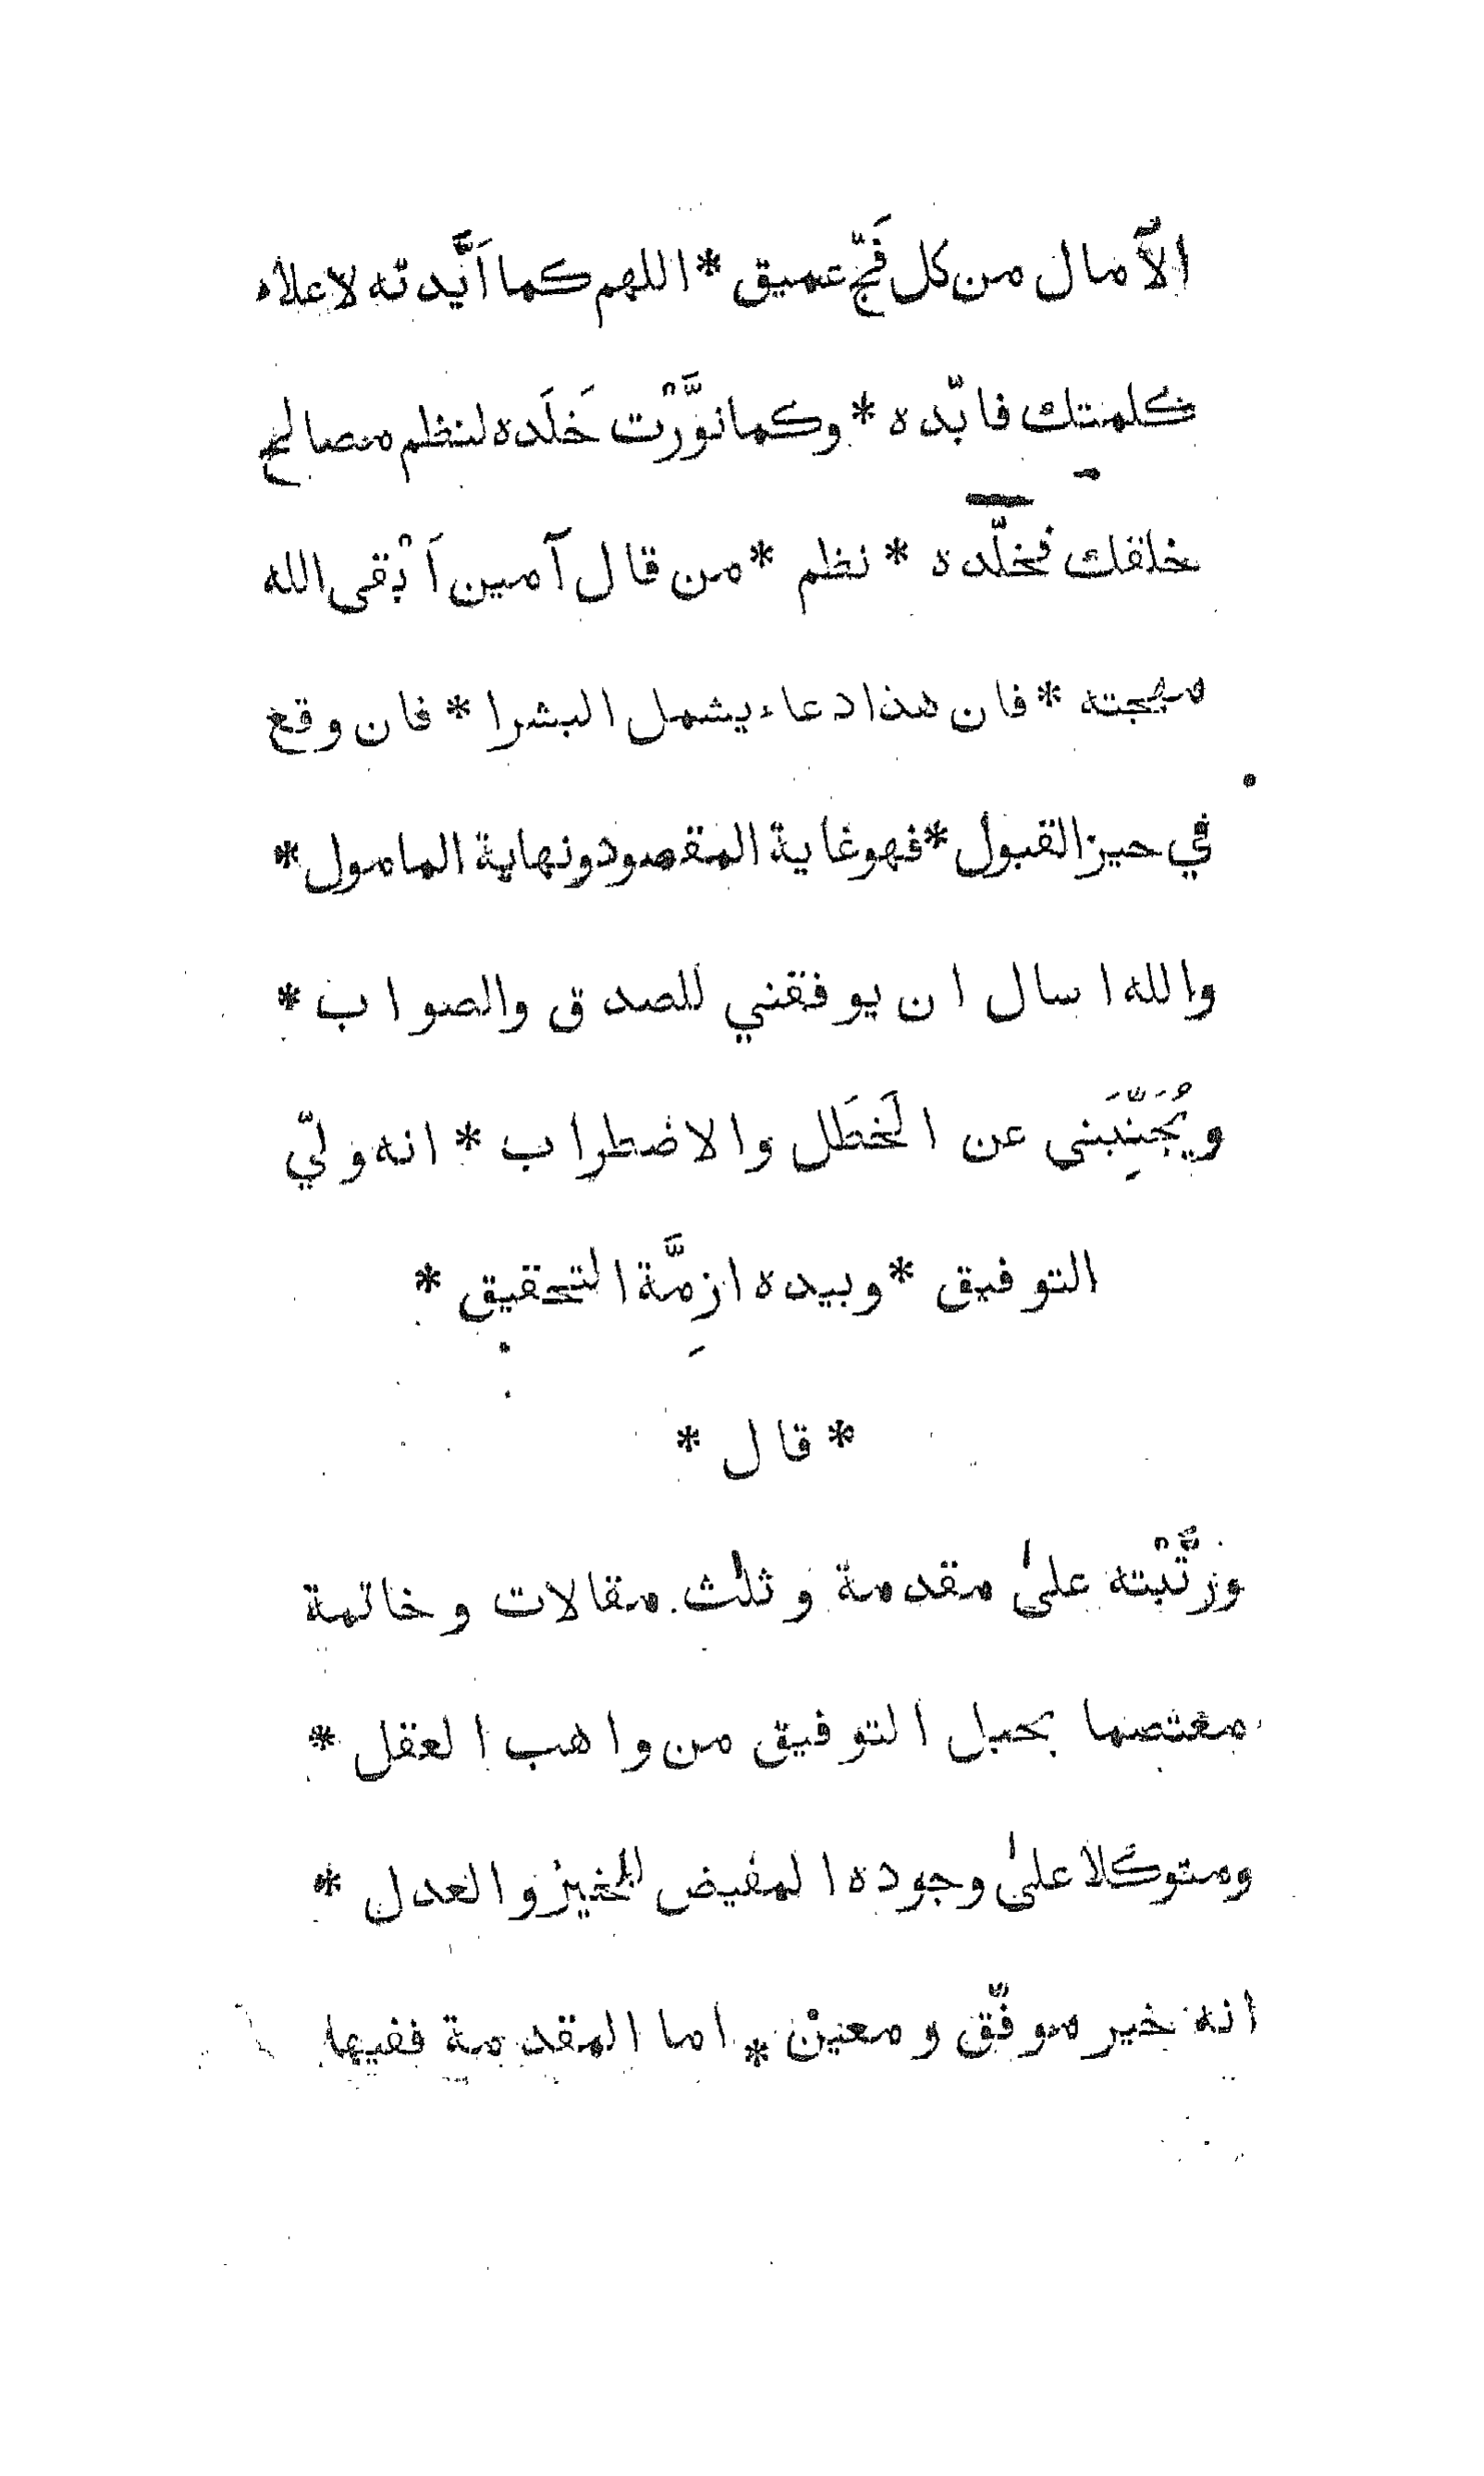 الآمال من كل فَجّ عميق * اللهم كما اَيَّدته لاعلاء
كلمتك فابّده * وكما نوَّرْت خَلَده لنظم مصالح
خلقك فخلّده * نظم * من قال آمين اَبْقى الله
مهجته * فان هذا دعاء يشمل البشرا * فان وقع
في حيز القبول * فهو غاية المقصود ونهاية المامول *
والله اسال ان يوفقني للصدق والصواب *
ويُجَنِّبَنى عن الخَطَل والاضطراب * انه وليّ
التوفيق * وبيده ازِمَّة التحقيق *
* قال *
ورتَّبْته علىٰ مقدمة وثلٰث مقالات وخاتمة
معتصما بحبل التوفيق من واهب العقل *
ومتوكلا علىٰ وجوده المفيض للخير والعدل *
انه خير موفّق ومعين * اما المقدمة ففيها